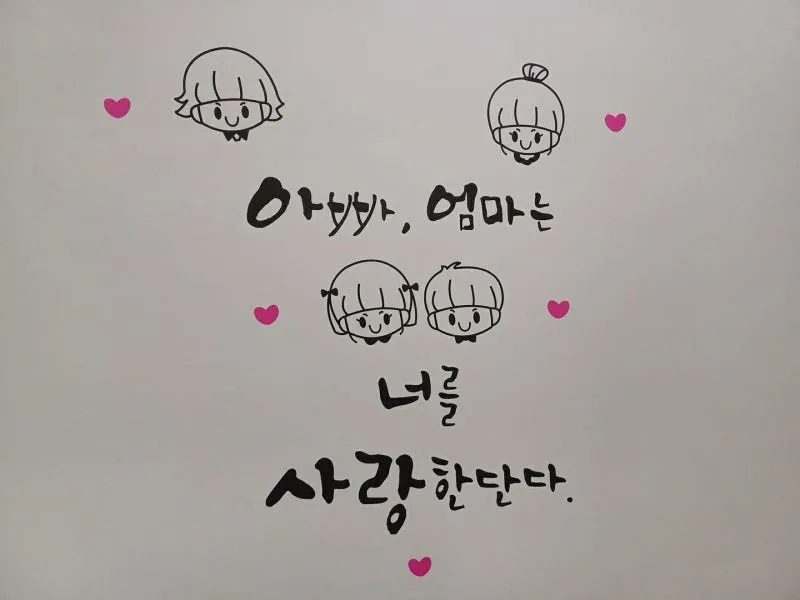 아빠, 엄마는
너를
사랑한단다.